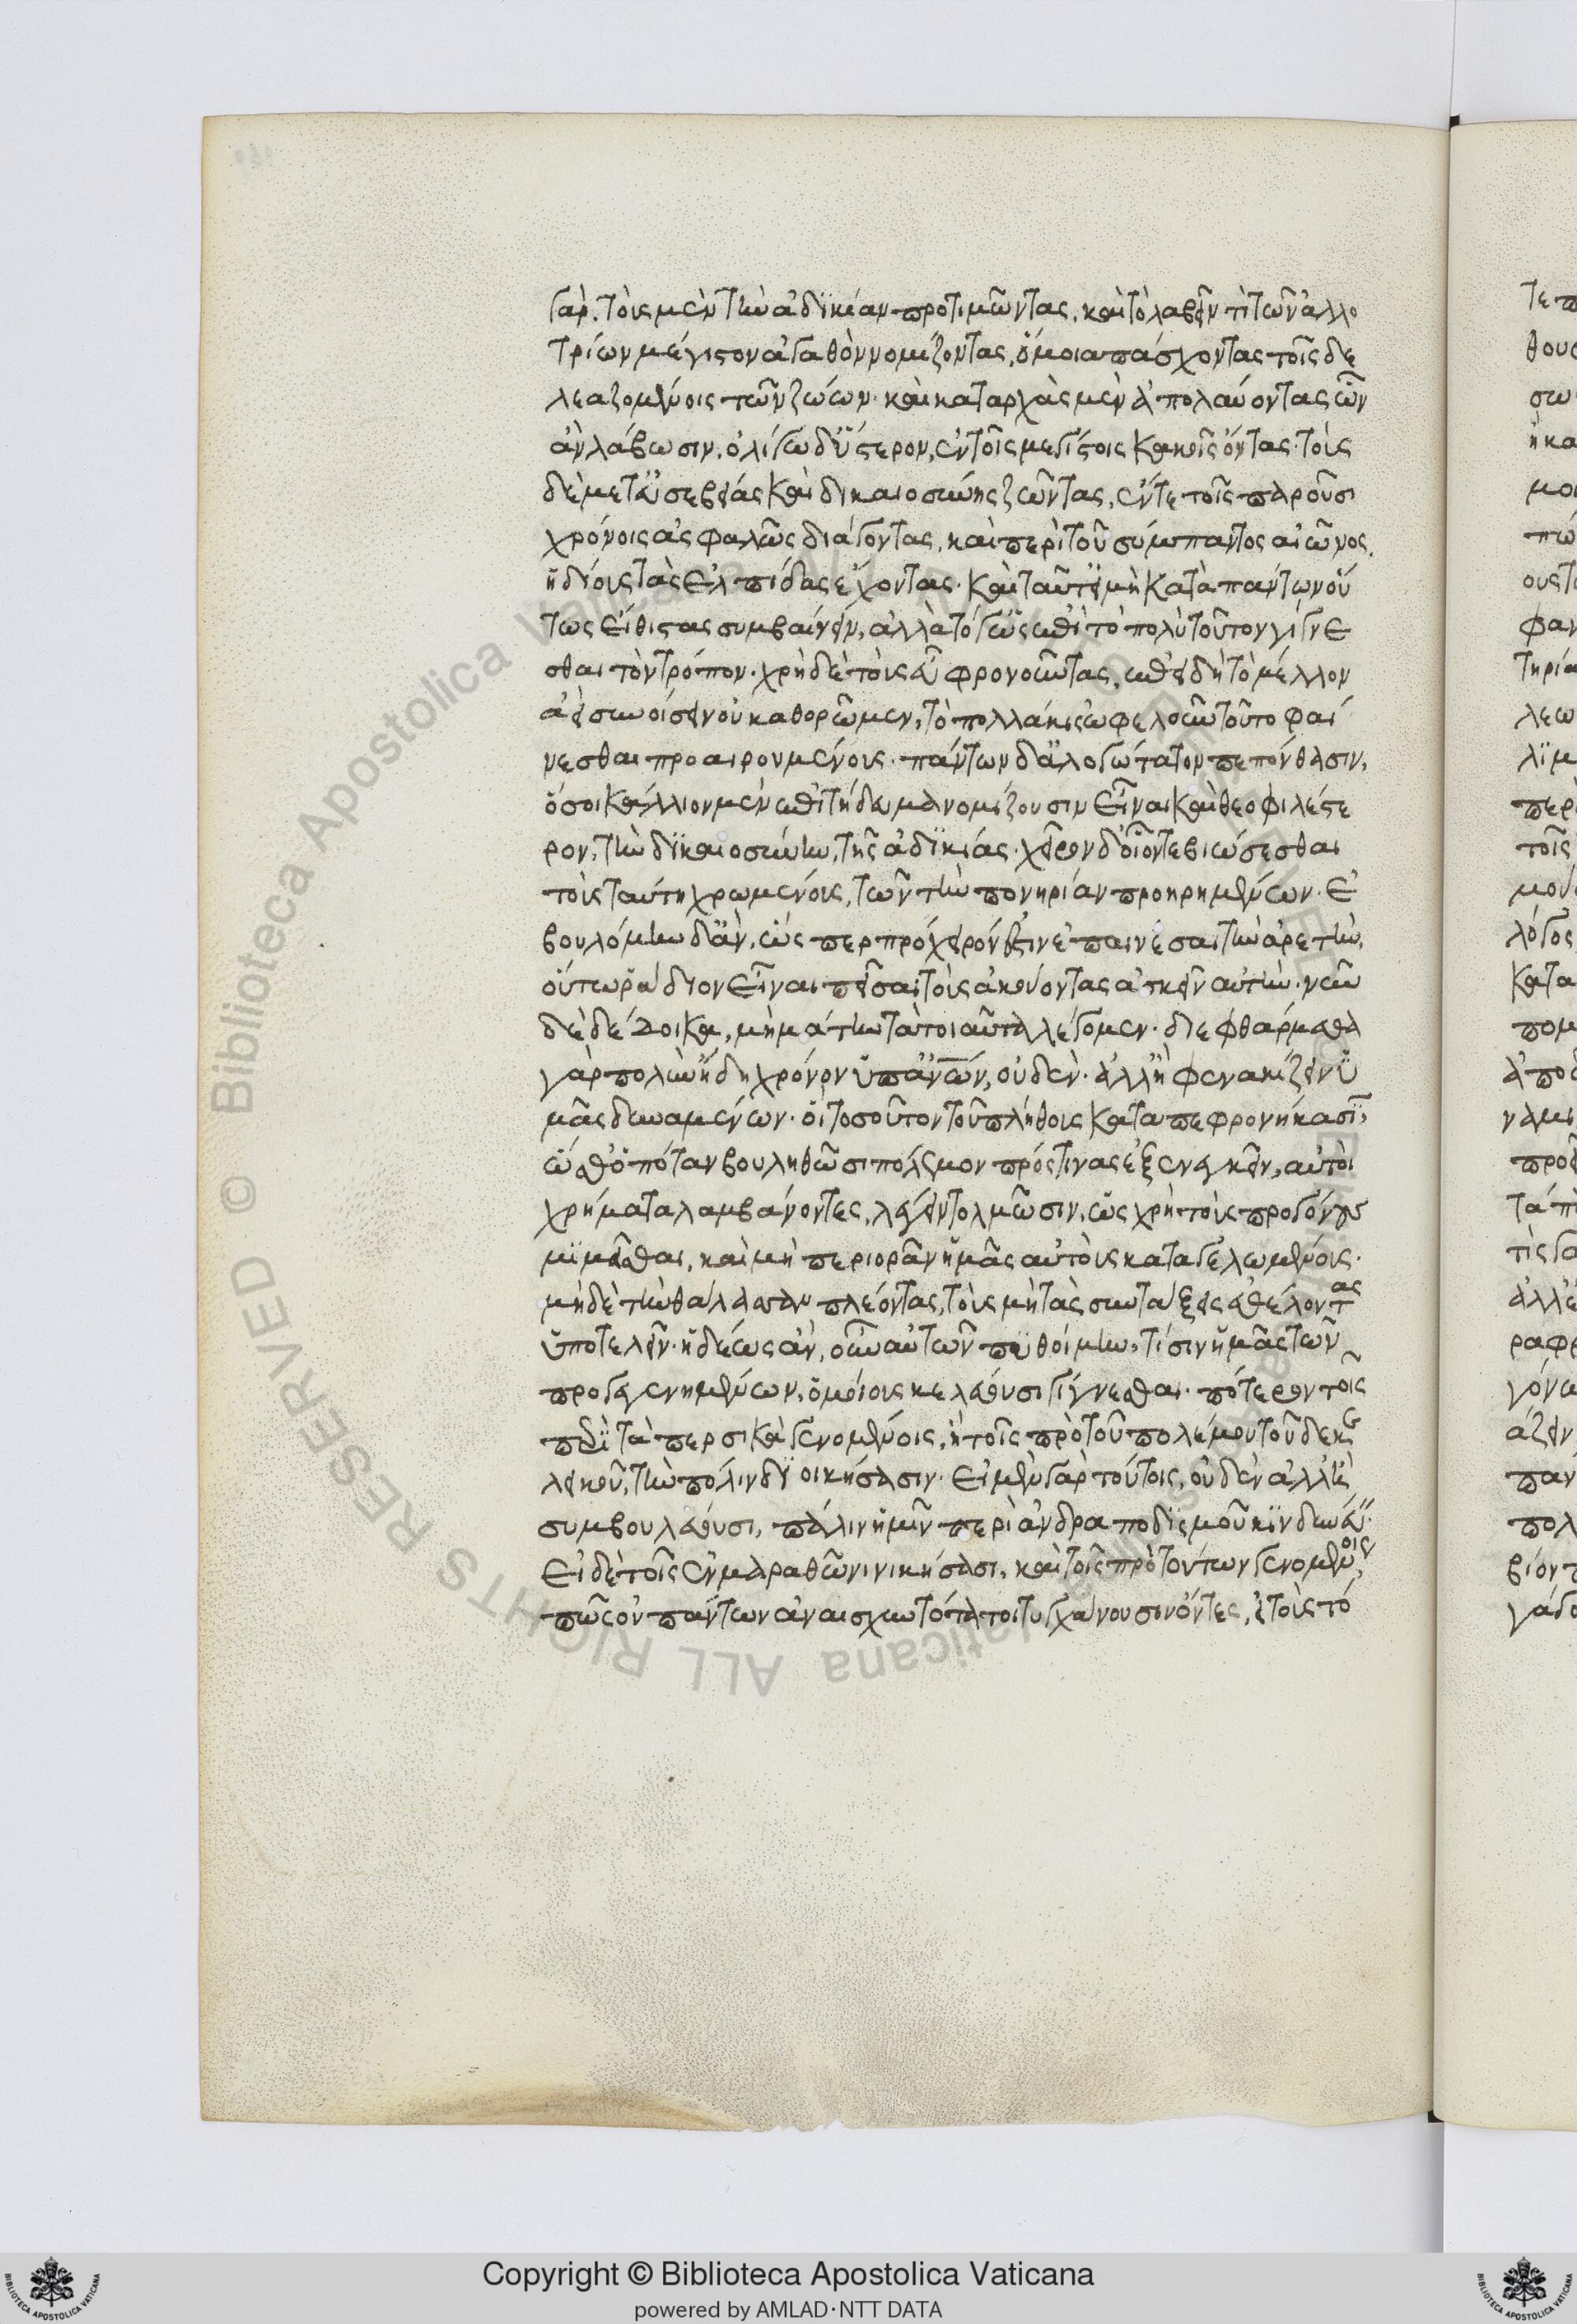 γὰρ. τοὺς μὲν τὴν ἀδικίαν προτιμῶντας, καὶ τὸ λαβεῖν τι τῶν ἀλλο
τρίων μέγιστον ἀγαθὸν νομίζοντας, ὅμοια πάσχοντας τοῖς δε
λεαζομένοις τῶν ζώων. καὶ καταρχὰς μὲν ἀπολαύοντας ὧν
ἂν λάβωσιν, ὀλίγω δ' ὕστερον, ἐν τοῖς μεγίστοις κακοῖς ὄντας. τοὺς
δὲ μετ' εὐσεβείας καὶ δικαιοσύνης ζῶντας, ἔν τε τοῖς παροῦσι
χρόνοις ἀσφαλῶς διάγοντας, καὶ περὶ τοῦ σύμπαντος αἰῶνος,
ἡδίους τὰς ἐλπίδας ἔχοντας. καὶ ταῦτ' εἰ μὴ κατὰ πάντων οὕ
τως εἴθισται συμβαίνειν, ἀλλὰ τό γ' ὡς ἐπὶ τὸ πολὺ τοῦτον γίγνε
σθαι τὸν τρόπον. χρὴ δὲ τοὺς εὖ φρονοῦντας, ἐπειδὴ τὸ μέλλον
ἀεὶ συνοίσειν οὐ καθορῶμεν, τὸ πολλάκις ὠφελοῦν τοῦτο φαί
νεσθαι προαιρουμένους. πάντων δ' ἀλογώτατον πεπόνθασιν,
ὅσοι κάλλιον μὲν ἐπιτήδευμα νομίζουσιν εἶναι καὶ θεοφιλέστε
ρον, τὴν δικαιοσύνην, τῆς ἀδικίας. χεῖρον δ' οἴονται βιώσεσθαι
τοὺς ταύτη χρωμένους, τῶν τὴν πονηρίαν προηρημένων. ἐ
βουλόμην δ' ἂν, ὥσπερ πρόχειρόν ἐστιν ἐπαινέσαι τὴν ἀρετὴν,
οὕτω ῥάδιον εἶναι πεῖσαι τοὺς ἀκούοντας ἀσκεῖν αὐτήν. νῦν
δὲ δέδοικα, μὴ μάτην τὰ τοιαῦτα λέγομεν. διεφθάρμεθα
γὰρ πολὺν ἤδη χρόνον ὑπ' ἀνων, οὐδὲν. ἀλλ' ἢ φενακίζειν ὑ
μᾶς δυναμένων. οἳ τοσοῦτον τοῦ πλήθους καταπεφρονήκασιν,
ὥσθ' ὁπόταν βουληθῶσι πόλεμον πρός τινας ἐξενεγκεῖν, αὐτοὶ
χρήματα λαμβάνοντες, λέγειν τολμῶσιν, ὡς χρὴ τοὺς προγόνους
μιμεῖσθαι, καὶ μὴ περιορᾶν ἡμᾶς αὐτοὺς καταγελωμένους.
μηδὲ τὴν θάλασσαν πλέοντας, τοὺς μὴ τὰς συντάξεις ἐθέλοντας
ὑποτελεῖν. ἡδέως ἂν, οὖν αὐτῶν πυθοίμην, τίσιν ἡμᾶς τῶν
προγεγενημένων, ὁμοίους κελεύουσι γίγνεσθαι. πότερον τοῖς
περὶ τὰ περσικὰ γενομένοις, ἢ τοῖς πρὸ τοῦ πολέμου τοῦ δεκε
λεικοῦ, τὴν πόλιν διοικήσασιν. εἰ μὲν γὰρ τούτοις, οὐδὲν ἀλλ' ἢ
συμβουλεύουσι, πάλιν ἡμῖν περὶ ἀνδραποδισμοῦ κινδυνεύειν.
εἰ δὲ τοῖς ἐν μαραθῶνι νικήσασι, καὶ τοῖς πρὸ τούτων γενομένοις,
πῶς οὐ πάντων ἀναισχυντότατοι τυγχάνουσιν ὄντες, εἰ τοὺς τό
Copyright © Biblioteca Apostolica Vaticana
powered by AMLAD·NTT DATA